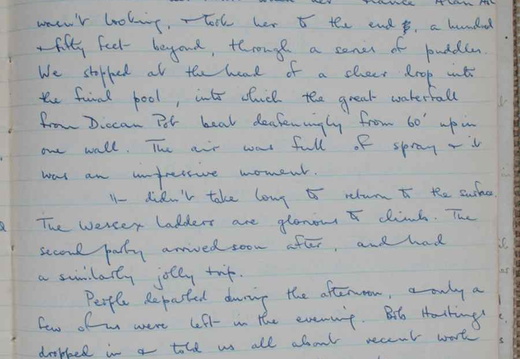 wasn't looking, & took her to the end, a hundred
& fifty feet beyond, through a series of puddles.
We stopped at the head of a sheer drop into
the final pool, into which the great waterfall
from Diccan Pot beat deafeningly from 60' up in
one wall. The air was full of spray & it
was an impressive moment.
It didn't take long to return to the surface.
The Wessex ladders are glorious to climb. The
second party arrived soon after, and had
a similarly jolly trip.
People departed during the afternoon, & only a
few of us were left in the evening. Bob Hastings
dropped in & told us all about recent work